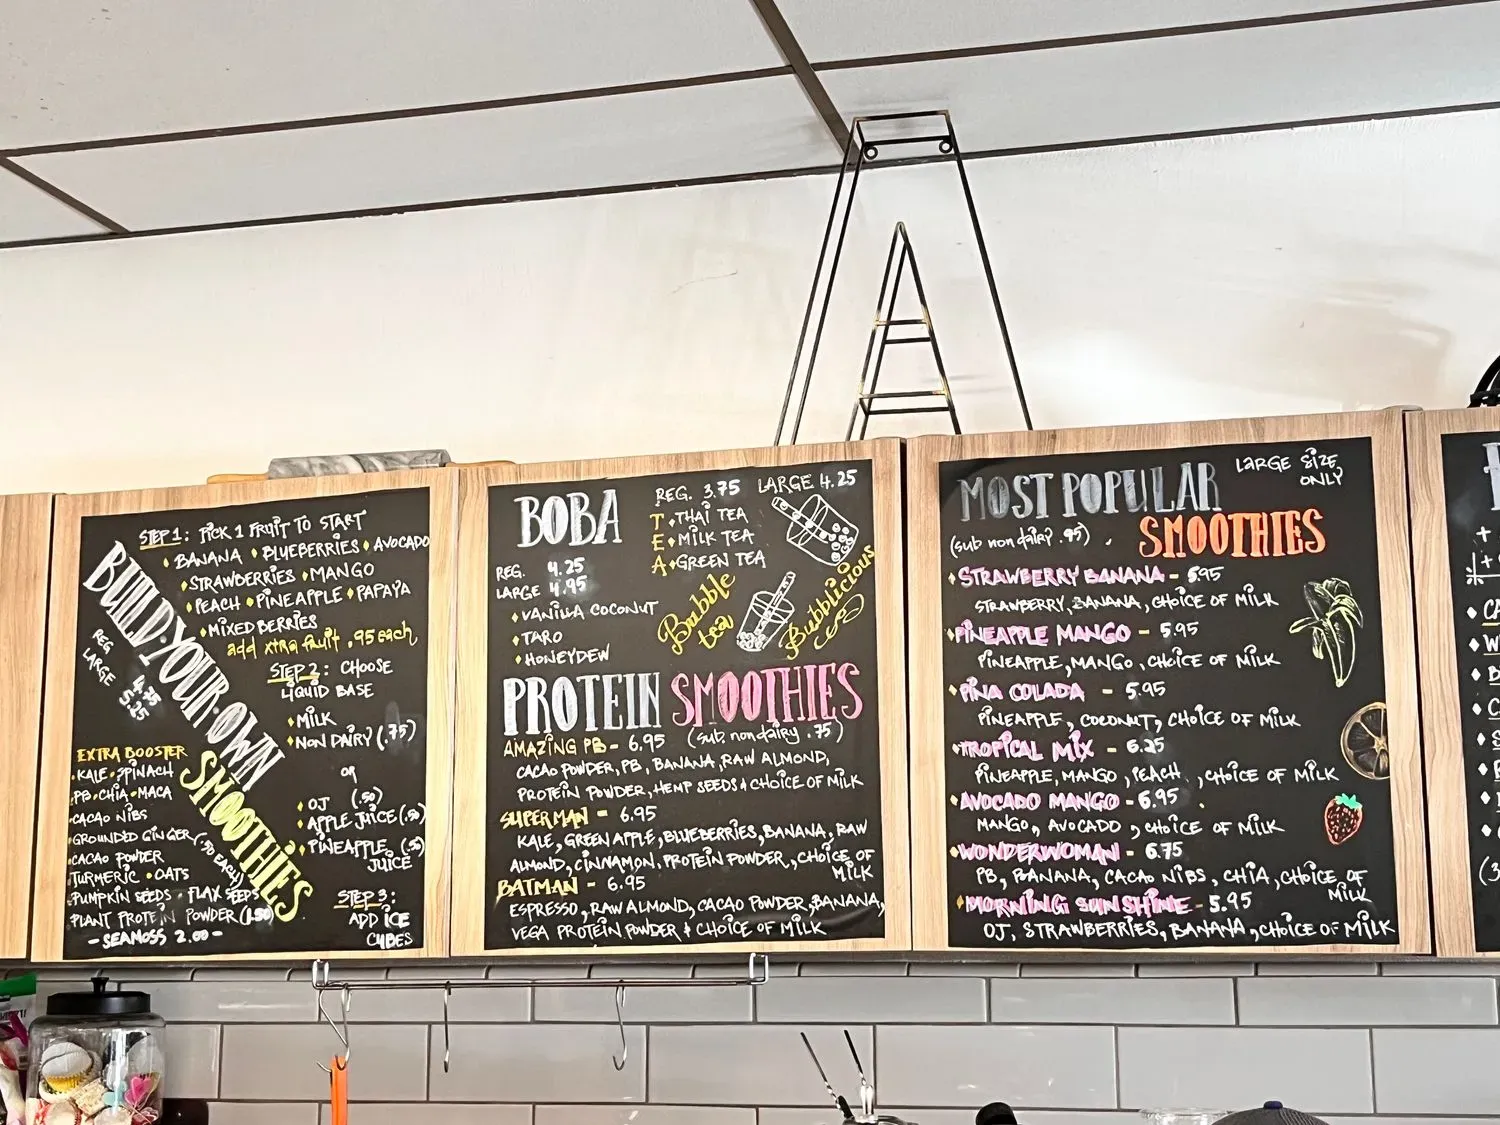 STEP 1: PICK 1 FRUIT TO START
BANANA • BLUEBERRIES • AVOCADO
•STRAWBERRIES •MANGO
•PEACH •PINEAPPLE •PAPAYA
•MIXED BERRIES
add xtra fruit .95 each
BUILD·YOUR·OWN
SMOOTHIES
REG 4.75
LARGE 5.25
STEP 2: CHOOSE
LIQUID BASE
•MILK
•NON DAIRY (.75)
or
•OJ (.50)
•APPLE JUICE (.50)
•PINEAPPLE (.50)
JUICE
STEP 3:
ADD ICE
CUBES
EXTRA BOOSTER
•KALE •SPINACH
•PB •CHIA •MACA
•CACAO NIBS
•GROUNDED GINGER (.50 EACH)
•CACAO POWDER
•TURMERIC •OATS
•PUMPKIN SEEDS • FLAX SEEDS
PLANT PROTEIN POWDER (1.50)
- SEAMOSS 2.00 -
BOBA
REG. 3.75 LARGE 4.25
TEA
•THAI TEA
•MILK TEA
•GREEN TEA
REG. 4.25
LARGE 4.95
•VANILLA COCONUT
•TARO
•HONEYDEW
Bubble
tea
Bubblicious
PROTEIN SMOOTHIES
(sub. nondairy .75)
AMAZING PB - 6.95
CACAO POWDER, PB, BANANA, RAW ALMOND,
PROTEIN POWDER, HEMP SEEDS & CHOICE OF MILK
SUPERMAN - 6.95
KALE, GREEN APPLE, BLUEBERRIES, BANANA, RAW
ALMOND, CINNAMON, PROTEIN POWDER, CHOICE OF
MILK
BATMAN - 6.95
ESPRESSO, RAW ALMOND, CACAO POWDER, BANANA,
VEGA PROTEIN POWDER & CHOICE OF MILK
MOST POPULAR
SMOOTHIES
LARGE SIZE
ONLY
(sub non dairy .95)
•STRAWBERRY BANANA - 5.95
STRAWBERRY, BANANA, CHOICE OF MILK
•PINEAPPLE MANGO - 5.95
PINEAPPLE, MANGO, CHOICE OF MILK
•PINA COLADA - 5.95
PINEAPPLE, COCONUT, CHOICE OF MILK
•TROPICAL MIX - 6.25
PINEAPPLE, MANGO, PEACH, CHOICE OF MILK
•AVOCADO MANGO - 6.95
MANGO, AVOCADO, CHOICE OF MILK
•WONDERWOMAN - 6.75
PB, BANANA, CACAO NIBS, CHIA, CHOICE OF
MILK
•MORNING SUNSHINE - 5.95
OJ, STRAWBERRIES, BANANA, CHOICE OF MILK